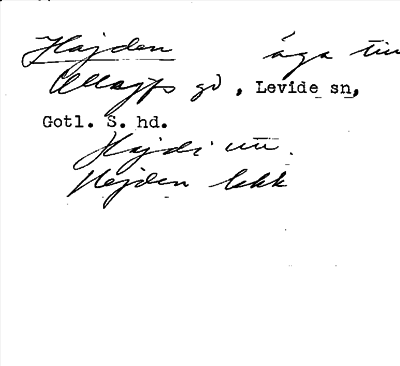 Hajden äga till
Allajfs gd, Levide sn,
Gotl. S. hd.
Hajdi utt.
Hejden lekk